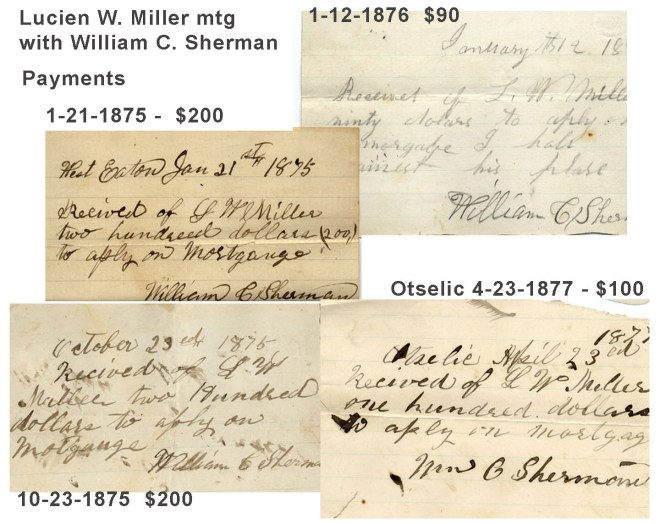 Lucien W. Miller mtg
with William C. Sherman
Payments
1-21-1875 - $200
West Eaton Jan 21st 1875
Received of L W Miller
two hundreed dollars (200)
to aply on Mortgauge
William C Sherman
1-12-1876 $90
January th 12 18
Received of L. W. Mille
ninty dollars to aply o
mortgage I hold
against his plase
William C Sher
October 23ed 1875
Recived of L W
Miller two Hundred
dollars to aply on
Motgauge
William C Sherm
10-23-1875 $200
Otselic 4-23-1877 - $100
187
Otselic April 23ed
Recived of L W Miller
one hundred dollars
to aply on mortgag
Wm C Shermon